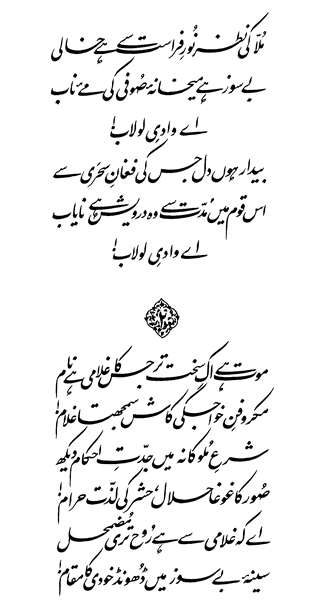 مُلّا کی نظر نُورِ فراست سے ہے خالی
بے سوز ہے میخانۂ صُوفی کی مئے ناب
اے وادیِ لولاب!
بیدار ہوں دل جس کی فغانِ سَحری سے
اس قوم میں مُدّت سے وہ درویش ہے نایاب
اے وادیِ لولاب!
۲
موت ہے اک سخت تر جس کا غلامی ہے نام
مکر و فنِ خواجگی کاش سمجھتا غلام!
شرعِ مُلوکانہ میں جدّتِ احکام دیکھ
صُور کا غوغا حلال، حشر کی لذّت حرام!
اے کہ غلامی سے ہے رُوح تری مُضمحل
سینۂ بے سوز میں ڈھُونڈ خودی کا مقام!